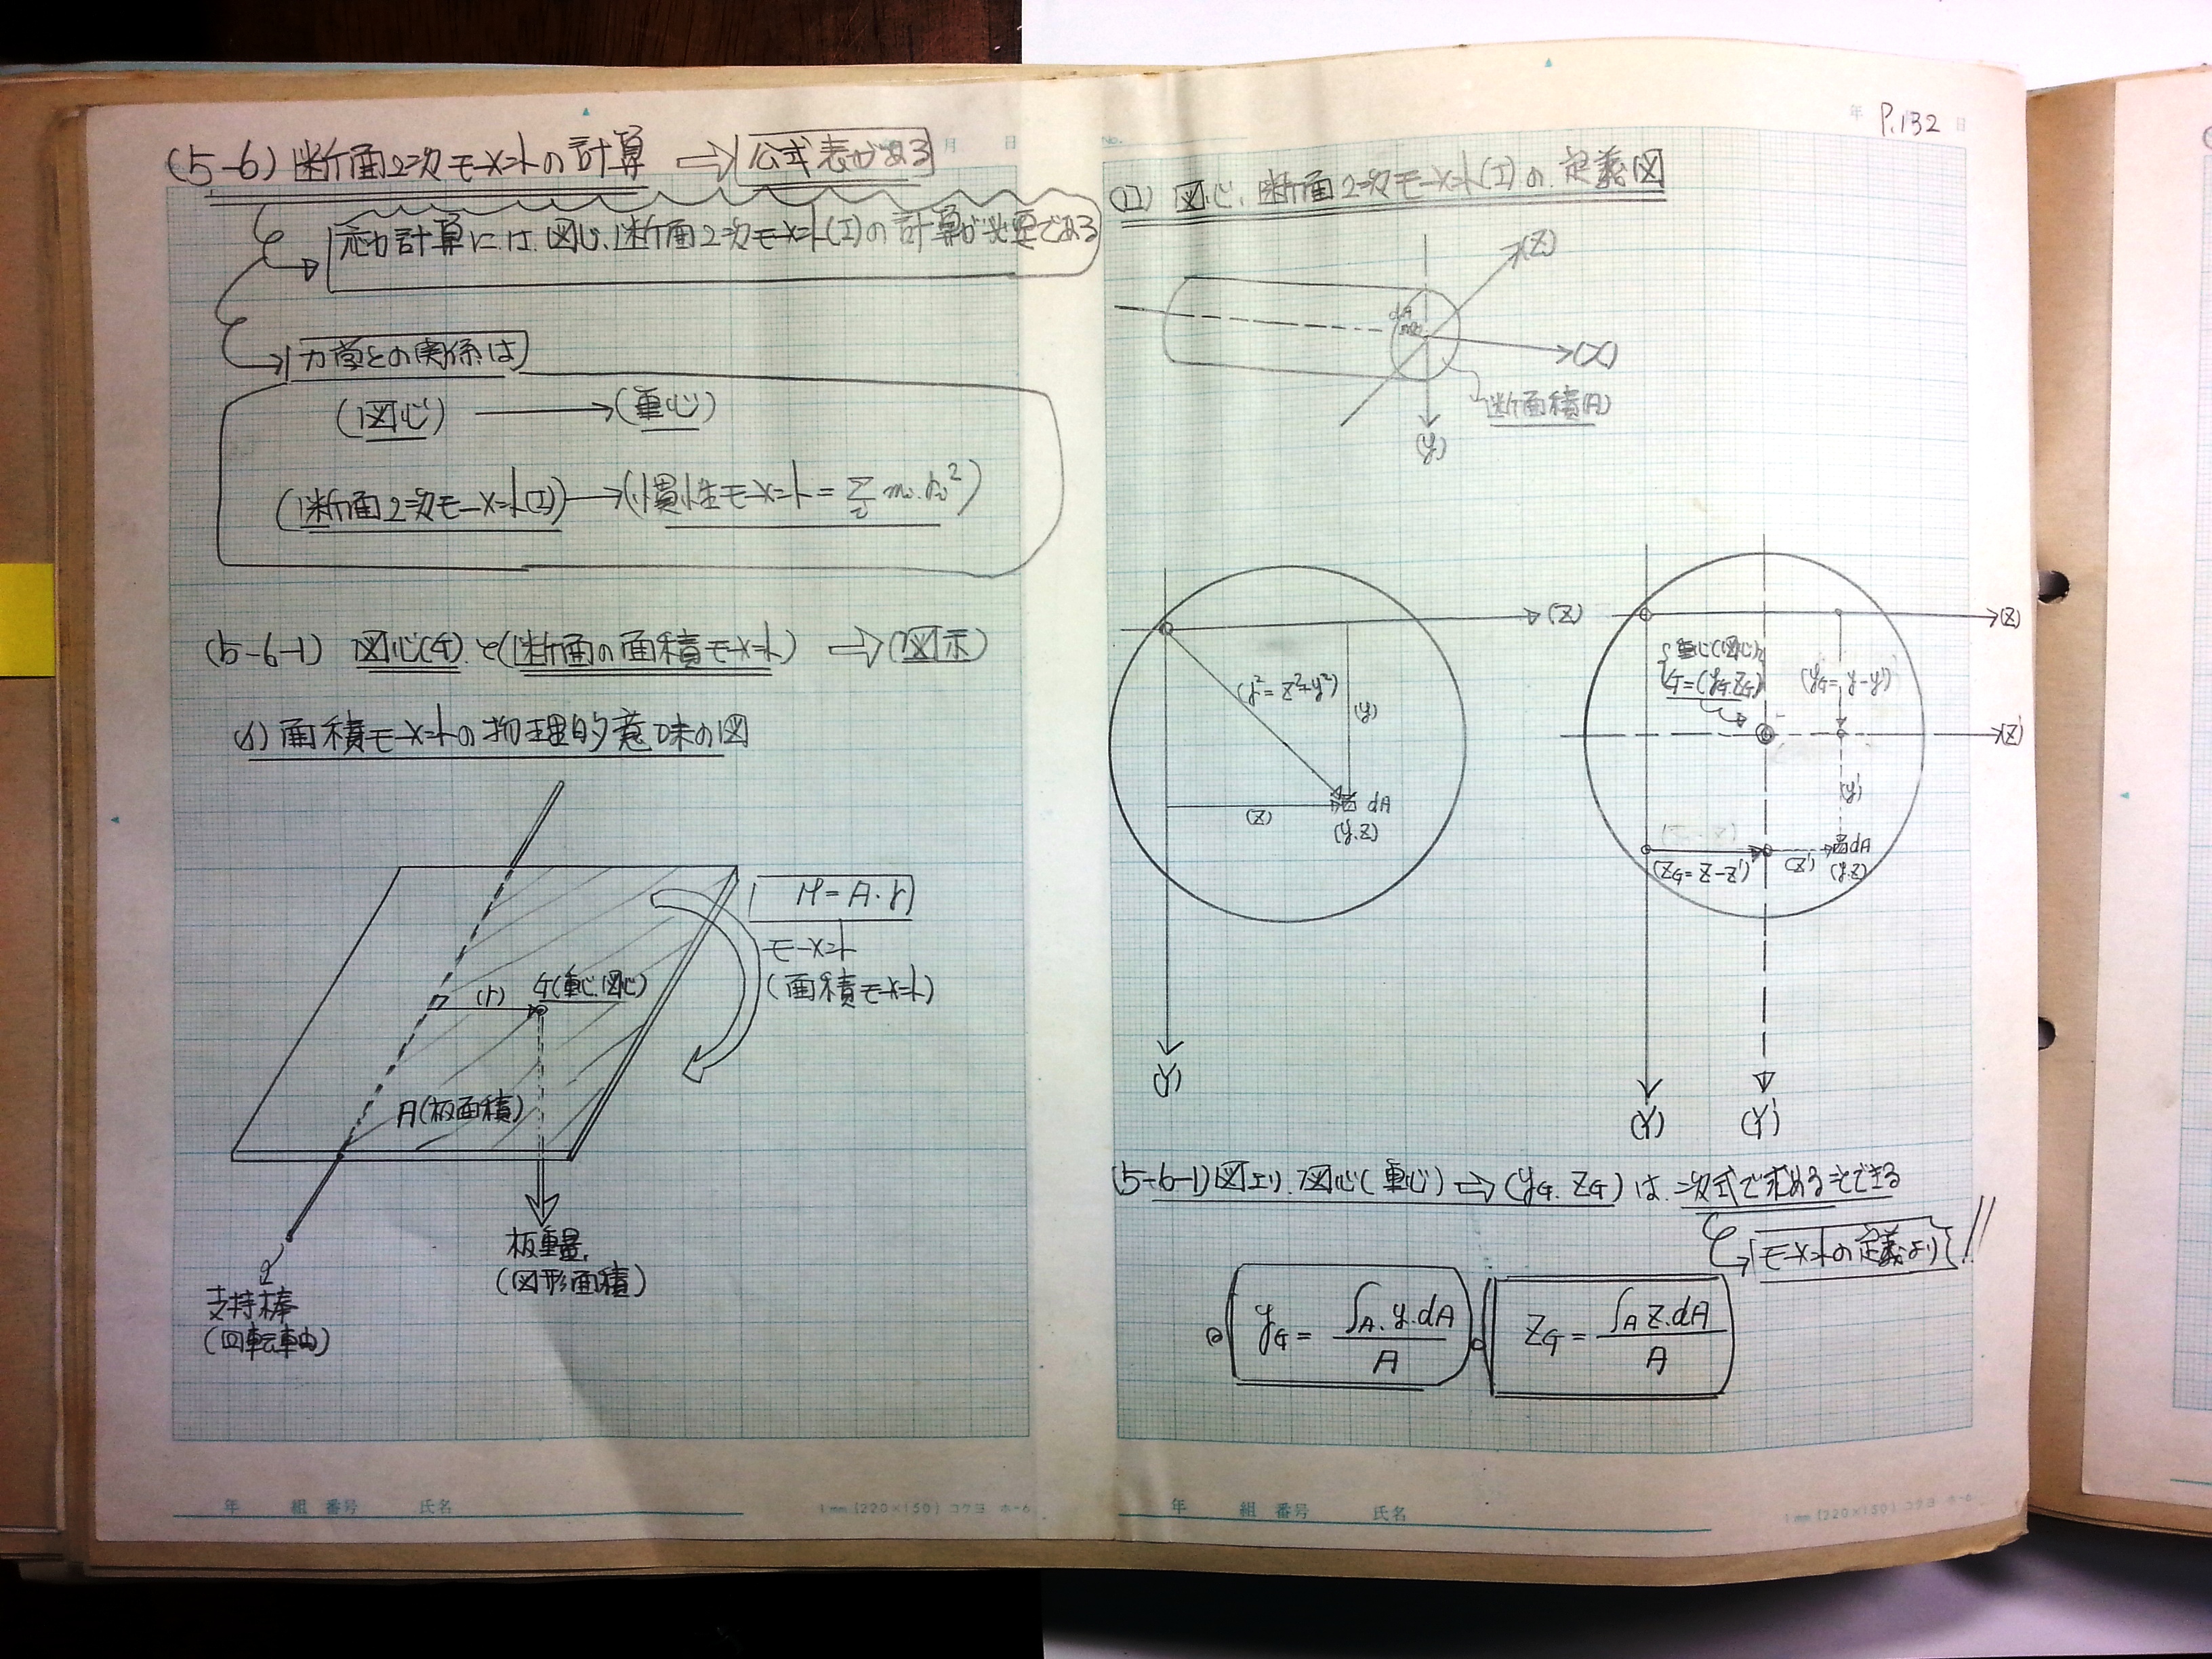 (5-6) 断面2次モーメントの計算 ⇨ 公式表がある
応力計算には、図心、断面2次モーメント(I)の計算が必要である
力学との関係は
(図心) → (重心)
(断面2次モーメント(I)) → (慣性モーメント = Σ mi・ri²)
(5-6-1) 図心(G)と(断面の面積モーメント) ⇨ (図示)
(イ) 面積モーメントの物理的意味の図
M = A・r
モーメント
(面積モーメント)
(r)
G(重心、図心)
A(板面積)
板重量
(図形面積)
支持棒
(回転軸)
年 組 番号 氏名
1mm (220×150) コクヨ ホ-6
月 日
No.
年 P.132 日
(ロ) 図心、断面2次モーメント(I)の定義図
(Z)
dA
(X)
断面積(A)
(y)
(Z)
(r²=z²+y²)
(y)
(Z)
dA
(y.z)
(Y)
(Z)
重心(図心)
G=(yG.ZG)
(yG=y-y')
(Z')
(y')
(ZG=Z-Z')
(Z')
dA
(y.z)
(Y)
(Y')
(5-6-1)図より、図心(重心) ⇨ (yG. ZG) は、次式で求める事できる
モーメントの定義より!!
yG = ∫A. y.dA / A
ZG = ∫A Z.dA / A
年 組 番号 氏名
1mm (220×150) コクヨ ホ-6